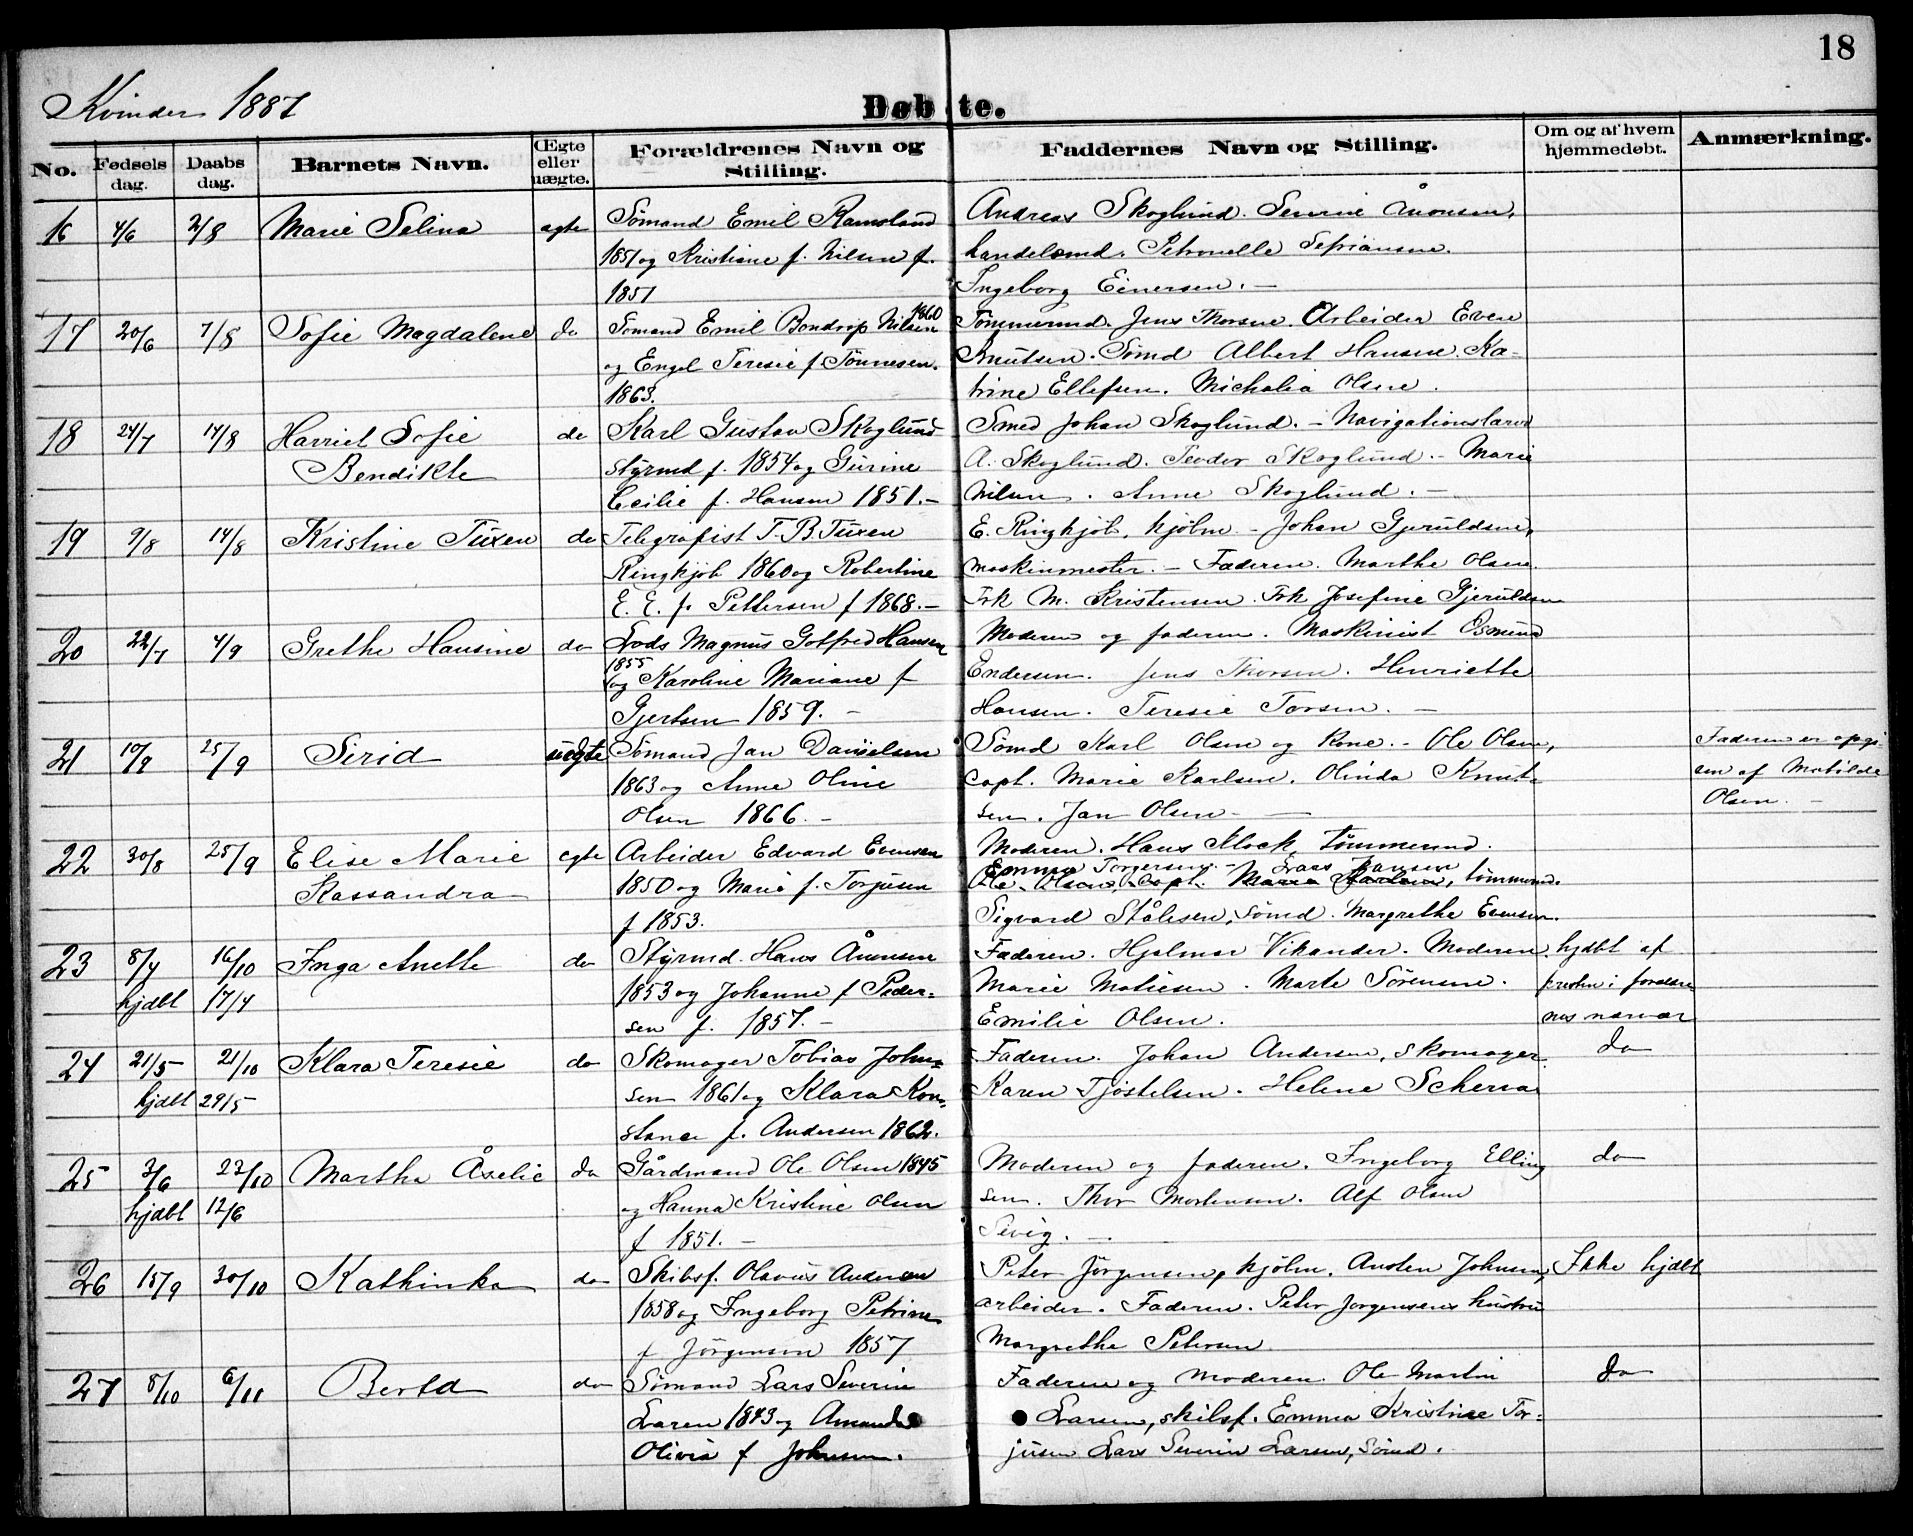 18
Kvinder 1887
Døbte.
No. Fødsels dag. Daabs dag. Barnets Navn. Œgte eller uægte. Forældrenes Navn og Stilling. Faddernes Navn og Stilling. Om og af hvem hjemmedøbt. Anmærkning.
16 4/6 2/8 Marie Selina egte Sømand Emil Ramsland Andreas Skoglund. Severine Monsen,
1851 og Kristiane f. Nilsen f. handelsmd. Petronelle
1851 Ingeborg Einersen. –
17 20/6 7/8 Sofie Magdalene do Sømand Emil Bondrop Nilsen 1860 Tømmermd. Jens Thorsen. Arbeider Even
og Engel Teresie f. Tønnesen. Knutsen. Sømd Albert Hansen. Ka-
1863. trine Ellefsen. Michalia Olsen.
18 24/7 14/8 Harriet Sofie do Karl Gustav Skoglund Smed Johan Skoglund. – Navigationslærer
Bendikte styrmd f. 1854 og Gurine A. Skoglund. Teodor Skoglund. – Marie
Cecilie f. Hansen 1851. – Nilsen. Anne Skoglund. –
19 9/8 14/8 Kristine Tuxen do Telegrafist T. B. Tuxen E. Ringkjøb, kjøbm. – Johan Gjeruldsen,
Ringkjøb 1860 og Robertine maskinmester. – Faderen. Marthe Olsen.
E. E. f. Pettersen f 1868. – Frk M. Kristensen. Frk Josefine Gjeruldsen
20 22/7 4/9 Grethe Hansine do Lods Magnus Gotfred Hansen Moderen og faderen. Maskinist Osmund
1855 og Karoline Mariane f Endersen. Jens Thorsen. Henriette
Gjertsen 1859. – Hansen. Teresie Torsen. –
21 10/9 25/9 Sirid uegte Sømand Jan Danielsen Sømd Karl Olsen og Kone. – Ole Olsen, Faderen er opgi-
1863 og Anne Oline capt. Marie Karlsen. Olinda Knut- ven af Matilde
Olsen 1866. – sen. Jan Olsen – Olsen. –
22 30/8 25/9 Elise Marie egte Arbeider Edvard Evensen Moderen. Hans Klock, tømmermd.
Kassandra 1850 og Marie f. Torjusen Emma Torgersen. – Lars Hansen
Ole Olsen, capt. Marie Karlsen, tømmermd.
f 1853. Sigvard Stålesen, sømd. Margrethe Evensen.
23 8/4 16/10 Inga Anette do Styrmd. Hans Ånensen Faderen. Hjalmar Vikander. Moderen. hjdbt af
hjdbt 17/4 1853 og Johanne f Peder- Marie Matiesen. Marte Sørensen. presten i forældre
sen f. 1857. – Emilie Olsen. nes nærvær
24 21/5 21/10 Klara Teresie do Skomager Tobias John- Faderen. Johan Andersen, skomager. do
hjdbt 29/5 sen 1861 og Klara Kon- Karen Tjøstelsen. Helene Scherra
stance f. Andersen 1862.
25 3/6 23/10 Martha Åxelie do Gårdmand Ole Olsen 1845 Moderen og faderen. Ingeborg Elling do
hjdbt 12/6 og Hanna Kristine Olsen sen. Thor Mortensen. Alf Olsen
f 1851. – Sevig. –
26 15/9 30/10 Kathinka do Skibsf. Olavus Andersen Peter Jørgensen, kjøbm. Austen Johnsen, Ikke hjdbt
1858 og Ingeborg Petrine arbeider. Faderen. Peter Jorgensens hustru
f Jörgensen 1857 Margrethe Petersen
27 8/10 6/11 Berta do Sømand Lars Severin Faderen og Moderen. Ole Martin do
Larsen 1843 og Amanda Larsen, skibsf. Emma Kristine Tor-
Olivia f Johnsen. jusen Lars Severin Larsen, Sømd.